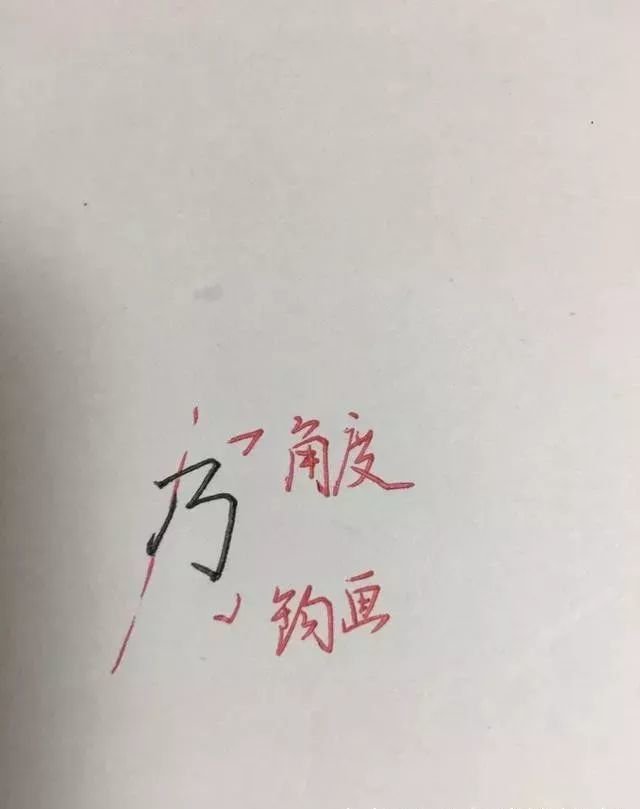 角度
钩画